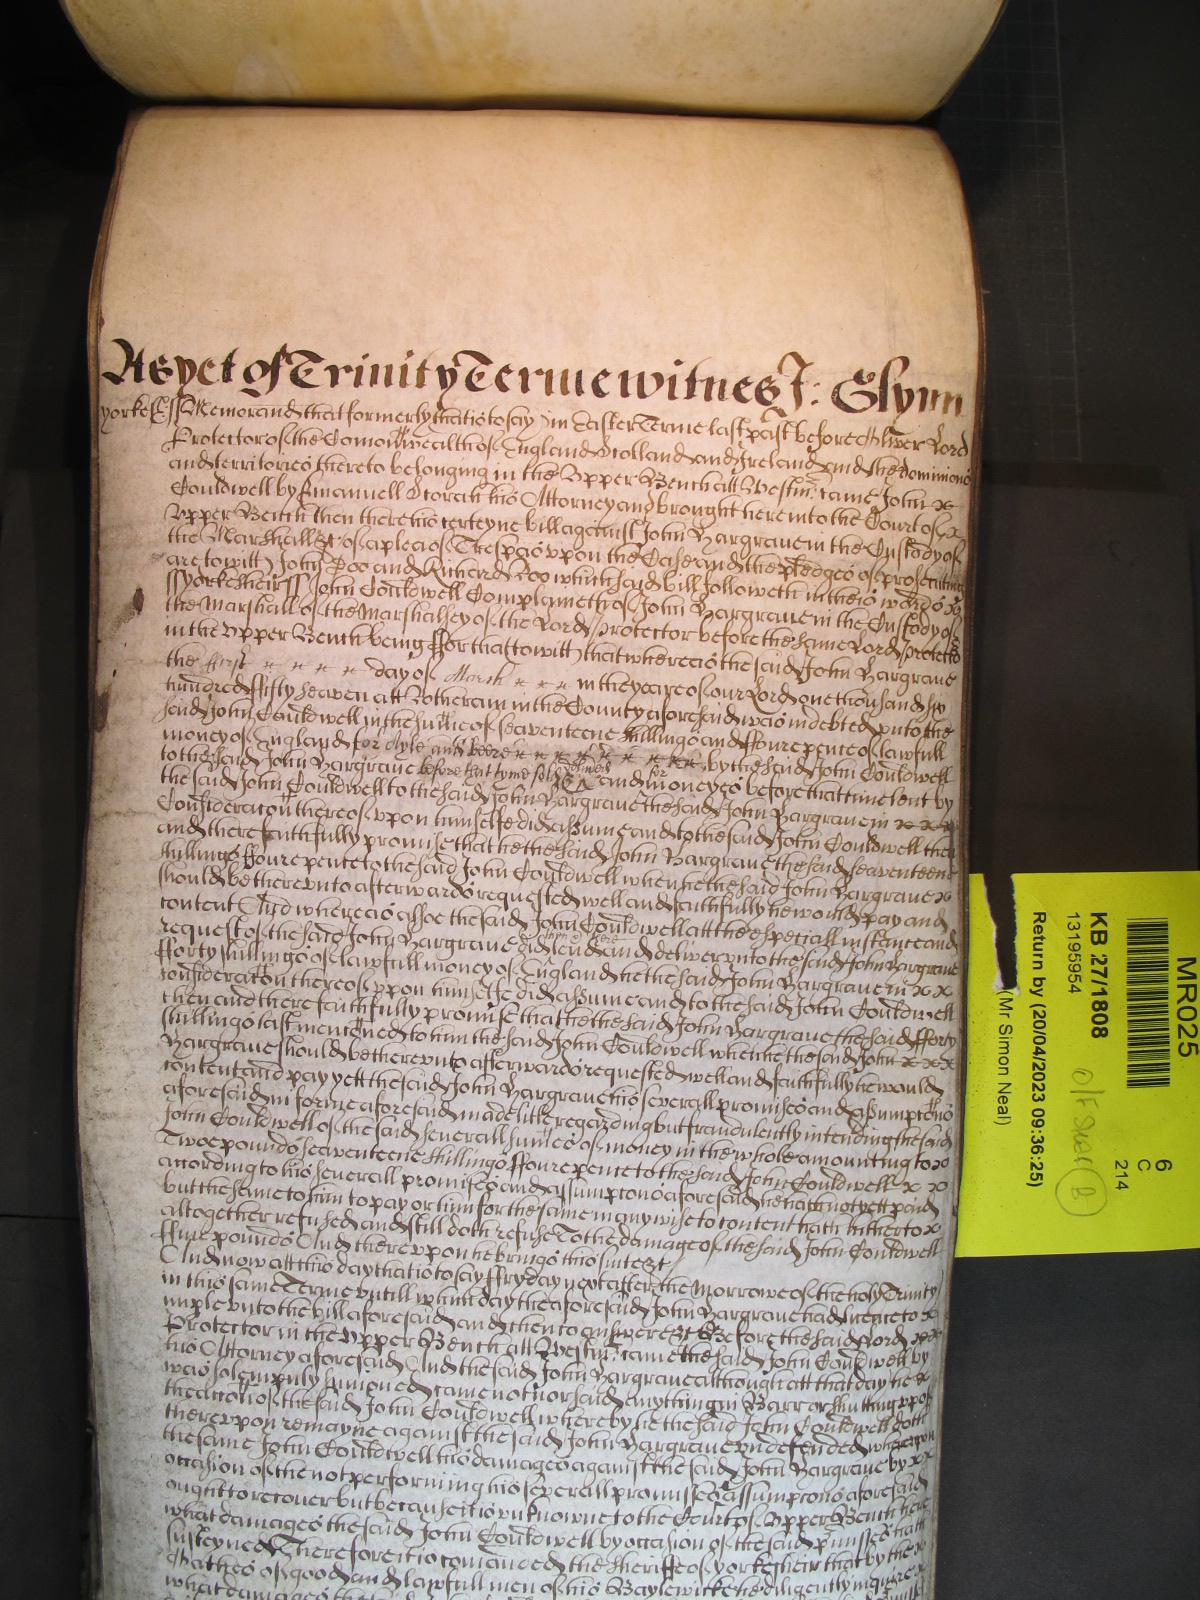 As yet of Trinity Terme witnes J: Glynn
yorkes ss Memorand that formerly that is to say in Easter Terme last past before Oliver Lord
Protector of the Comonwealth of England Scotland and Ireland and the dominions
and territories thereto belonging in the Upper Bench att Westm came John x
Couldwell by Emanuell Storah his Attorney and brought here into the Court of x
Upper Bench then there his certeyne bill against John Hargrave in the Custody of
the Marshall &c of a plea of Trespas upon the Case and the pledges of prosecuting
are to witt John Doo and Richard Roo which said bill followeth in theis words x
ss yorkesheir ss John Couldwell Complaineth of John Hargrave in the Custody of
the Marshall of the Marshalsey of the Lord Protector before the same Lord Protector
in the Upper Bench being ffor that to witt that whereas the said John Hargrave
the first x x x x day of March x x x in the yeare of our Lord one thousand six
hundred ffifty seaven att Rotheram in the County aforesaid was indebted unto the
said John Couldwell in the sume of seaventeene shillings and ffoure pence of lawfull
money of England for Ayle and beere x x x x x x x by the said John Couldwell
to the said John Hargrave before that tyme sold and for moneyes before that time lent by
the said John Couldwell to the said John Hargrave the said John Hargrave in x x x
Consideracon thereof upon himselfe did assume and to the said John Couldwell then
and there faithfully promise that he the said John Hargrave the said seaventeene
shillings ffoure pence to the said John Couldwell when he the said John Hargrave x
should be thereunto afterwards requested well and faithfully he would pay and
content And whereas alsoe the said John Couldwell att the especiall instance and
request of the said John Hargrave did lend and deliver unto the said John Hargrave
fforty shillings of lawfull money of England he the said John Hargrave in x x
consideracon thereof upon himselfe did assume and to the said John Couldwell
then and there faithfully promise that he the said John Hargrave the said fforty
shillings last menconed to him the said John Couldwell when he the said John x x x
Hargrave should be thereunto afterwards requested well and faithfully he would
content and pay yett the said John Hargrave his severall promises and assumpcons
aforesaid in forme aforesaid made litle regarding but fraudulently intending the said
John Couldwell of the said severall sumes of money in the whole amounting to x
Twoe pounds seaventeene shillings ffoure pence to the said John Couldwell x x
according to his severall promises and assumpcons aforesaid he hath not yett paid
but the same to him to pay or him for the same in any wise to content hath hitherto x
altogether refused and still doth refuse To the damage of the said John Couldwell
ffive pounds And thereupon he brings this suite &c
And now att this day that is to say ffryday next after the Morrowe of the holy Trinity
in this same Terme untill which day the aforesaid John Hargrave had licence to x
imple unto the bill aforesaid and then to answere &c Before the said Lord x x
Protector in the Upper Bench att Westm came the said John Couldwell by
his Attorney aforesaid And the said John Hargrave although att that day he x
was solempnly sumoned came not nor said anything in Barr or shutting upp of
the accon of the said John Couldwell whereby he the said John Couldwell doth
thereupon remayne against the said John Hargrave undefended whereupon
the same John Couldwell his damages against the said John Hargrave by x x
occasion of the not performing his severall promises & assumpcons aforesaid
ought to recover but because it is unknowne to the Court of Upper Bench here
what damages the said John Couldwell by occasion of the said pmisses hath
susteyned Therefore it is comanded the Sheriffe of yorkesheir that by the x
oathes of good and lawfull men of his Baylewicke he diligently inquire x
what damages the
MR025
6
C
214
KB 27/1808
13195954
Return by (20/04/2023 09:36:25)
(Mr Simon Neal)